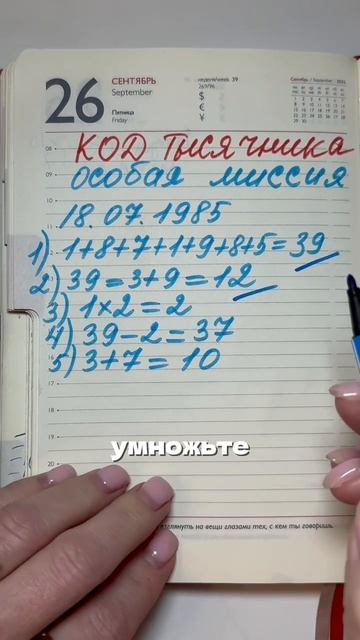 26
СЕНТЯБРЬ
September
Пятница
Friday
неделя/week 39
269/96
$
€
¥
Сентябрь / September
КОД ТЫСЯЧНИКА
ОСОБАЯ МИССИЯ
18.07.1985
1) 1+8+7+1+9+8+5=39
2) 39=3+9=12
3) 1×2=2
4) 39-2=37
5) 3+7=10
умножьте
08
17
18
19
20
взглянуть на вещи глазами тех, с кем ты говоришь.